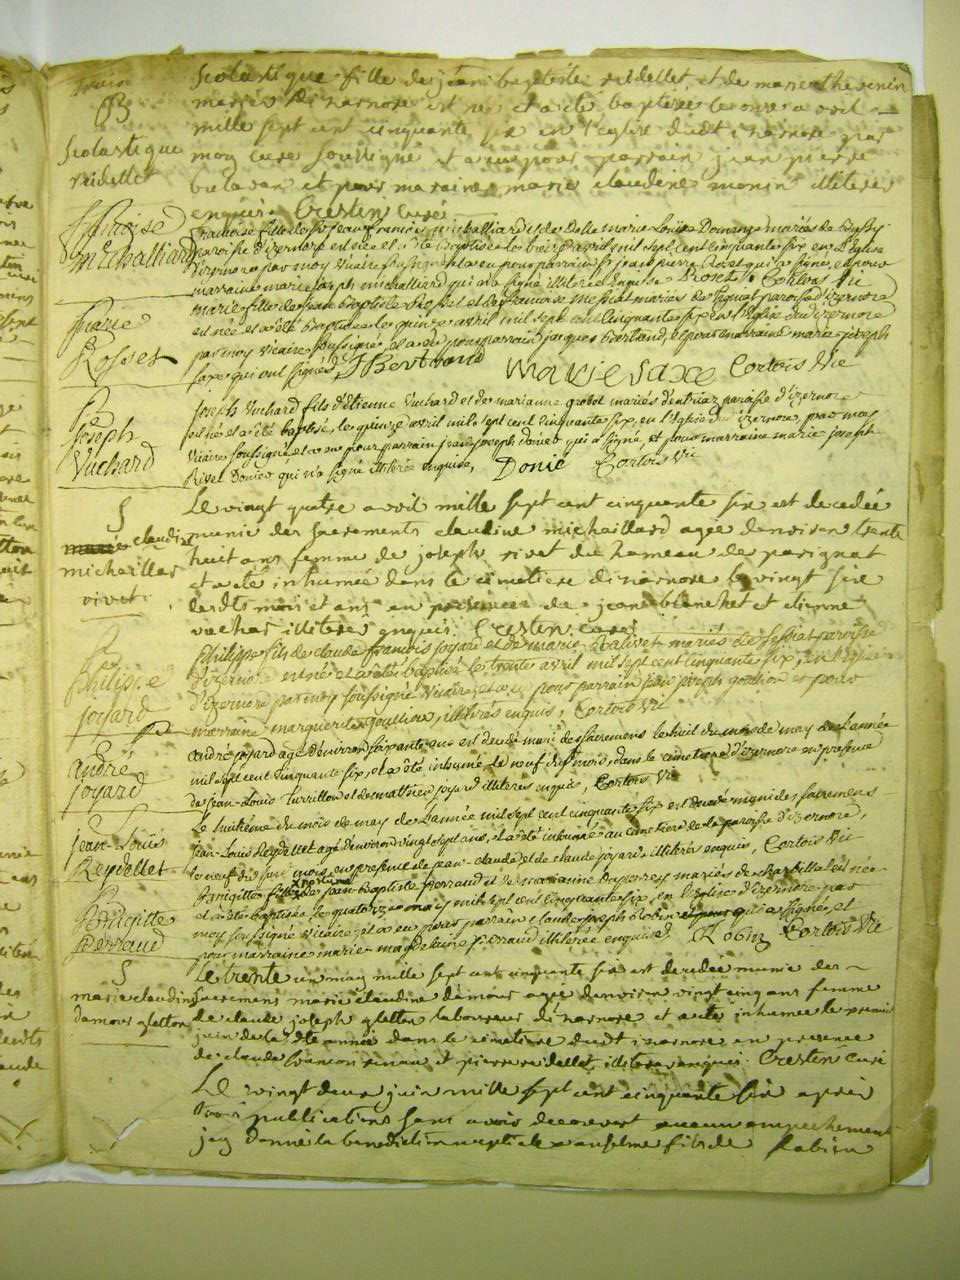 Scolastique
reidellet
scolastique fille de jean baptiste reidellet, et de marie thevenin
mariés d'izarnore est née et a été baptisée le onze avril
mille sept cent cinquante six en l'eglise dudt izarnore par
moy curé soussigné et a eu pour parrain jean pierre
et pour maraine marie claudine monin illiteres
enquis. Crestin curé
françoise
michalliard
françoise fille de sr jean françois michalliard et de Delle marie Louise Domange mariés de
paroisse d'izernore est née et a été baptisée le trois avril mil sept cent cinquante six en l'Eglise
d'izernore par moy Vicaire soussigné et a eu pour parrain sr jean pierre qui a signé, et pour
marraine marie joseph michalliard qui n'a signé illiterée Enquise Cortois Vic
Marie
Rosset
marie fille de jean baptiste Rosset et de françoise mermet mariés de Signat paroisse d'izernore
est née et a été baptisée le quinze avril mil sept cent cinquante six en l'Eglise d'izernore
par moy vicaire soussigné, et a eu pour parrain jacques bertrand, et pour marraine marie joseph
saxe qui ont signés, J Bertrand Marie Saxe Cortois Vic
Joseph
Vuchard
joseph Vuchard fils d'étienne Vuchard et de marianne grobot mariés d'intriaz paroisse d'izernore
est né et a été baptisé, le quinze avril mil sept cent cinquante six, en l'Eglise d'izernore, par moy
vicaire soussigné et a eu pour parrain jean joseph donier qui a signé, et pour marraine marie joseph
Rivet Donier qui n'a signé illiterée enquise, Donié Cortois Vic
claudine
michaillard
rivet
Le vingt quatre avril mille sept cent cinquante six est decedée
munie des sacrements claudine michaillard agée d'environ trente
huit ans femme de joseph rivet du hameau de perignat
et a été inhumée dans le cimetiere d'izarnore le vingt six
desdts mois et ans en presence de jean blanchet et etienne
vuchar illiteres enquis. Crestin curé
Philippe
joyard
Philippe fils de claude françois joyard et de marie Balivet mariés de Cessiat paroisse
d'izernore est né et a été baptisé le trente avril mil sept cent cinquante six, en l'Eglise
d'izernore par moy soussigné vicaire, et a eu pour parrain jean joseph goullion et pour
marraine marguerite goullion, illiterés enquis, Cortois Vic
André
joyard
André joyard agé d'environ soixante ans est decedé muni des sacremens le huit du mois de may de l'année
mil sept cent cinquante six, et a été inhumé le neuf dudt mois, dans le cimetiere d'izernore en presence
de jean Louis turrillon et de mathieu joyard illiterés enquis, Cortois Vic
jean-Loüis
Reydellet
Le huitième du mois de may de l'année mil sept cent cinquante six est decedé muni des sacremens
jean Louis Reydellet agé d'environ vingt sept ans, et a été inhumé au cimetiere de la paroisse d'izernore,
le neuf dudt mois en presence de jean claude et de claude joyard illiterés enquis, Cortois Vic
Brigitte
Perraud
Brigitte fille de jean baptiste Perraud et de marianne duperrey mariés de charbillat est née
et a été baptisée le quatorze may mil sept cent cinquante six, en l'Eglise d'izernore par
moy soussigné vicaire, et a eu pour parrain claude joseph Robin qui a signé, et
pour marraine marie magdelaine Perraud illiterée enquise. C Robin Cortois Vic
marie claudine
damour gletton
Le trente un may mille sept cent cinquante six est decedée munie des
sacremens marie claudine d'amour agée d'environ vingt cinq ans femme
de claude joseph gletton laboureur d'izarnore et a été inhumée le premier
juin de la dte année dans le cimetiere dudt izarnore en presence
de claude françois et pierre reidellet illiteres enquis. Crestin curé
Le vingt deux juin mille sept cent cinquante six apres
trois publications sans avoir decouvert aucun empechement
jay donné la benediction nuptiale a anselme fils de fabien